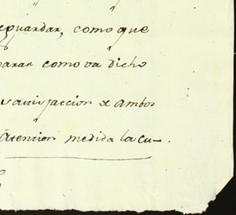 guardar, como que
como va dicho
satisfaccion de ambos
atencion medida la cu-.